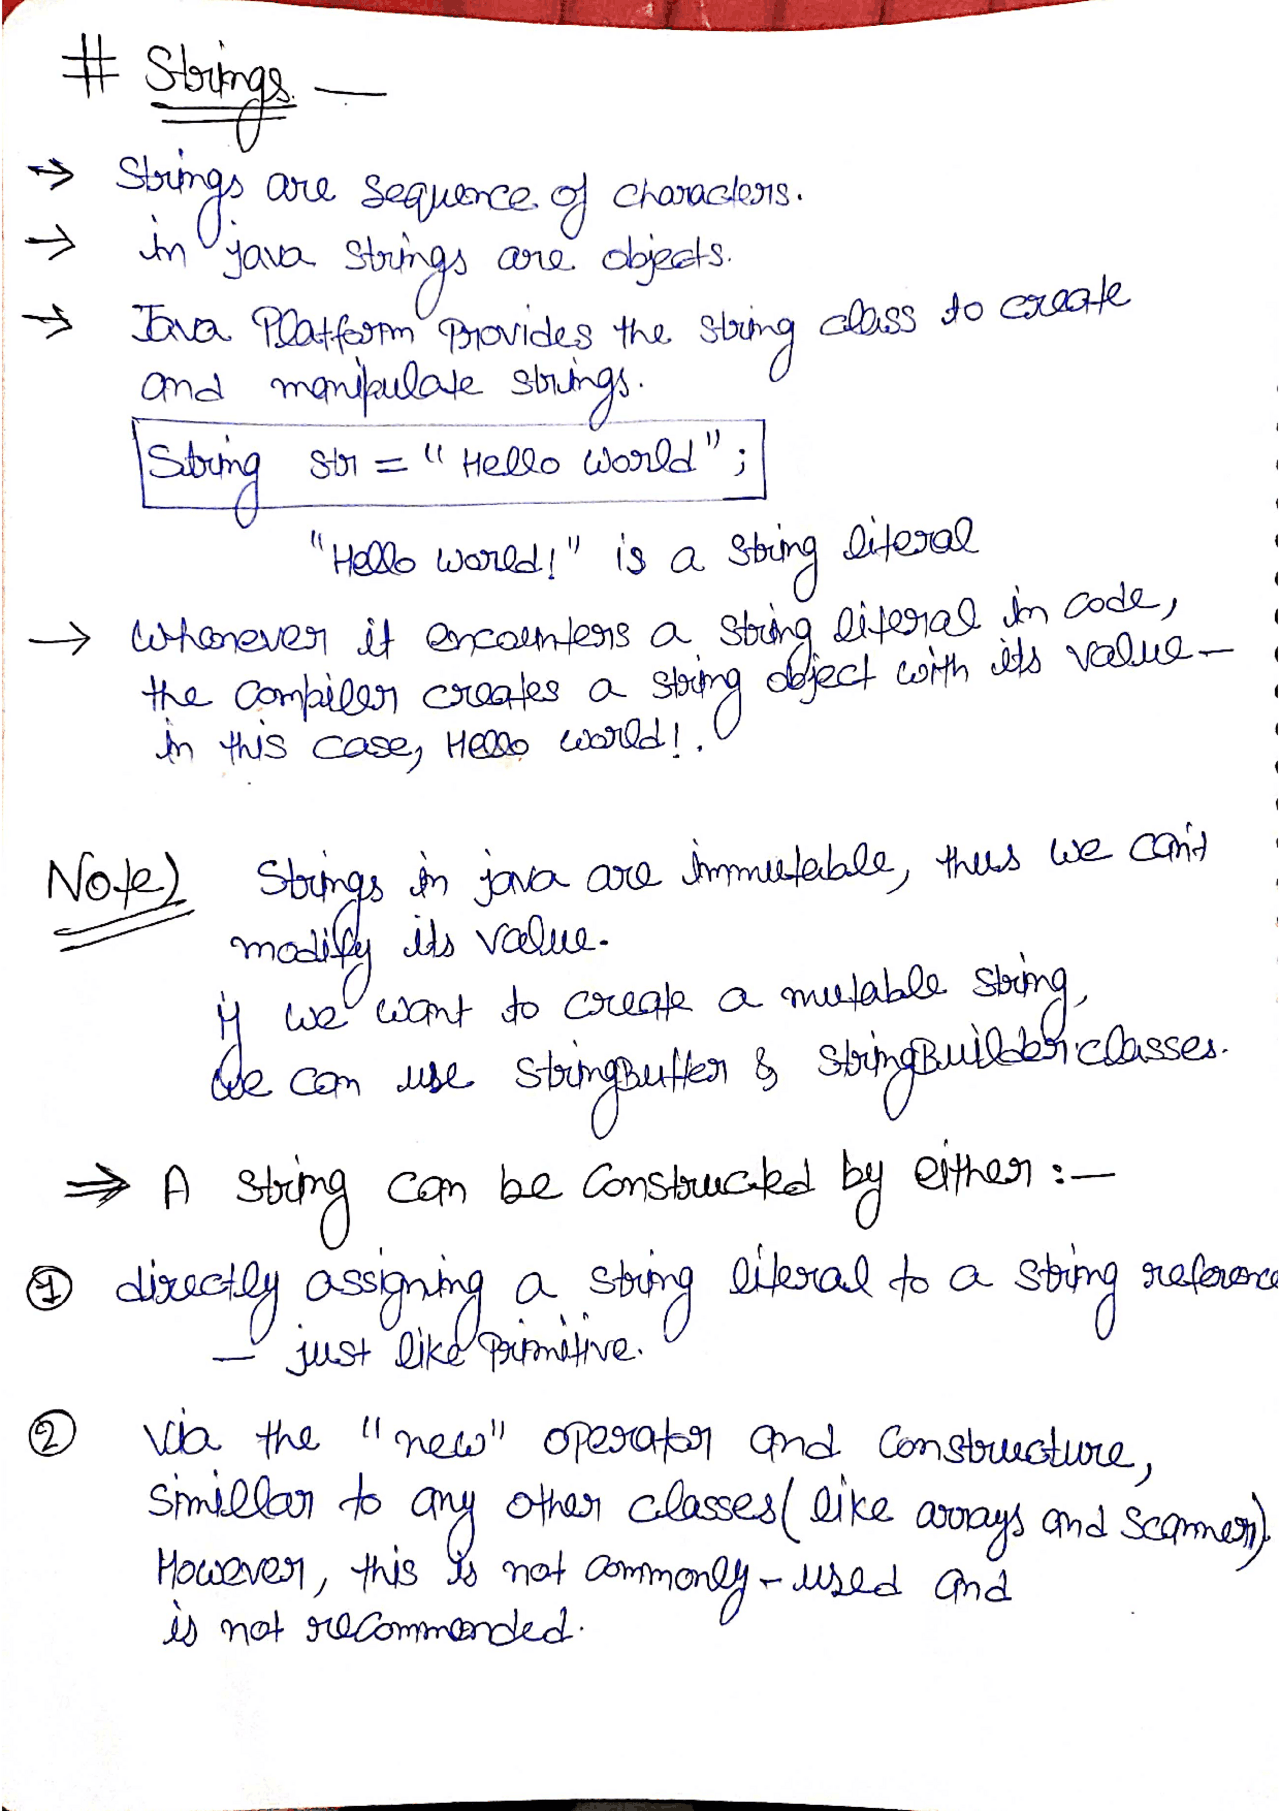 # Strings. —
→ Strings are sequence of characters.
→ in java strings are objects.
→ Java Platform Provides the string class to create
and manipulate strings.
String str = "Hello world";
"Hello world!" is a string literal
→ Whenever it encounters a string literal in code,
the compiler creates a string object with its value –
in this case, Hello world!.
Note) Strings in java are immutable, thus we can't
modify its value.
if we want to create a mutable string,
We can use stringBuffer & stringBuilder classes.
⇒ A string can be Constructed by either :–
① directly assigning a string literal to a string reference
– just like Primitive.
② via the "new" operator and Constructure,
simillar to any other classes( like arrays and scanner).
However, this is not commonly – used and
is not recommended.